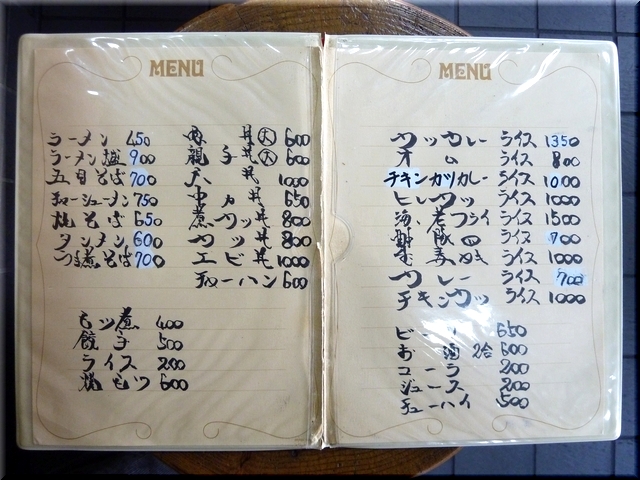 MENU
ラーメン 450
ラーメン 塩 900
五目そば 700
チャーシューメン 750
焼そば 650
タンメン 600
つけそば 700
肉 丼 大 600
親子丼 大 600
天 丼 1000
中 カ 丼 650
煮カツ丼 800
カツ丼 800
エビ丼 1000
チャーハン 600
モツ煮 400
餃子 500
ライス 200
焼モツ 600
MENU
カツカレーライス 1350
オムライス 800
チキンカツカレーライス 1000
ヒレカツライス 1000
海老フライライス 1500
ライス 700
ライス 1000
カレーライス 700
チキンカツ 1000
ビール 650
お酒 2合 600
コーラ 200
ジュース 200
チューハイ 500